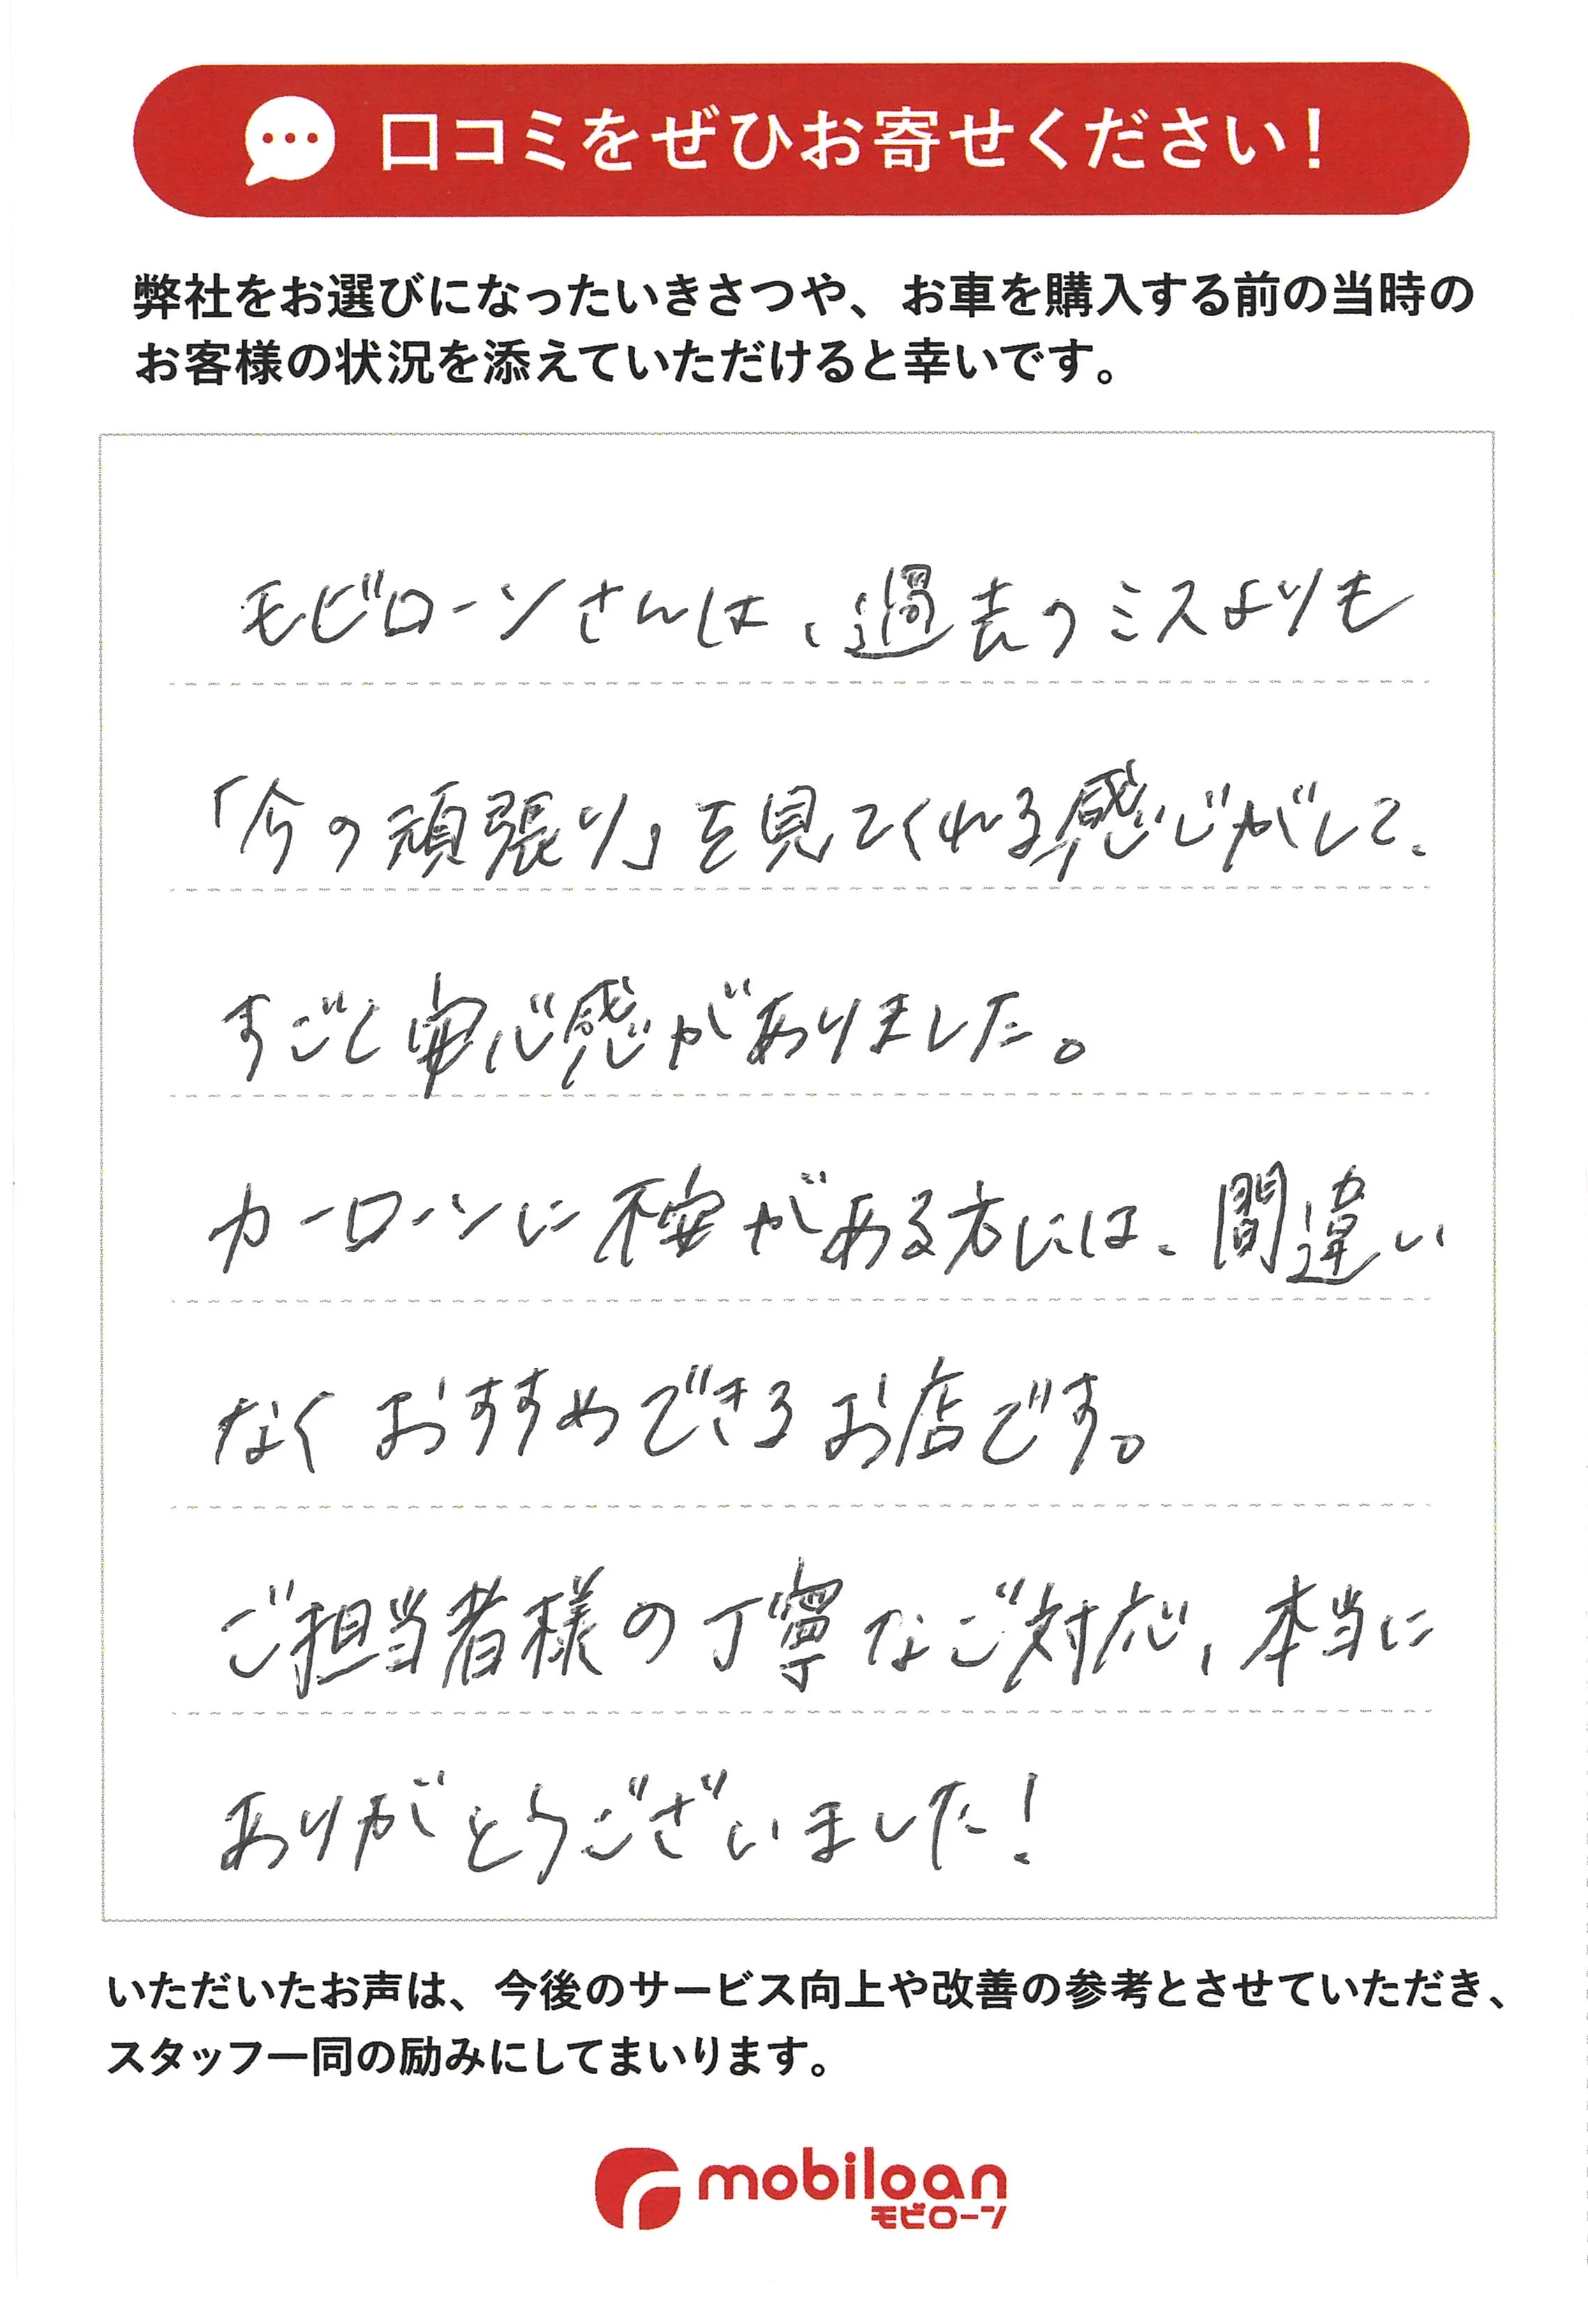 口コミをぜひお寄せください！
弊社をお選びになったいきさつや、お車を購入する前の当時の
お客様の状況を添えていただけると幸いです。
モビローンさんは、過去のミスよりも
「今の頑張り」を見てくれる感じがして、
すごく安心感がありました。
カーローンに不安がある方には、間違い
なくおすすめできるお店です。
ご担当者様の丁寧なご対応、本当に
ありがとうございました！
いただいたお声は、今後のサービス向上や改善の参考とさせていただき、
スタッフ一同の励みにしてまいります。
mobiloan
モビローン